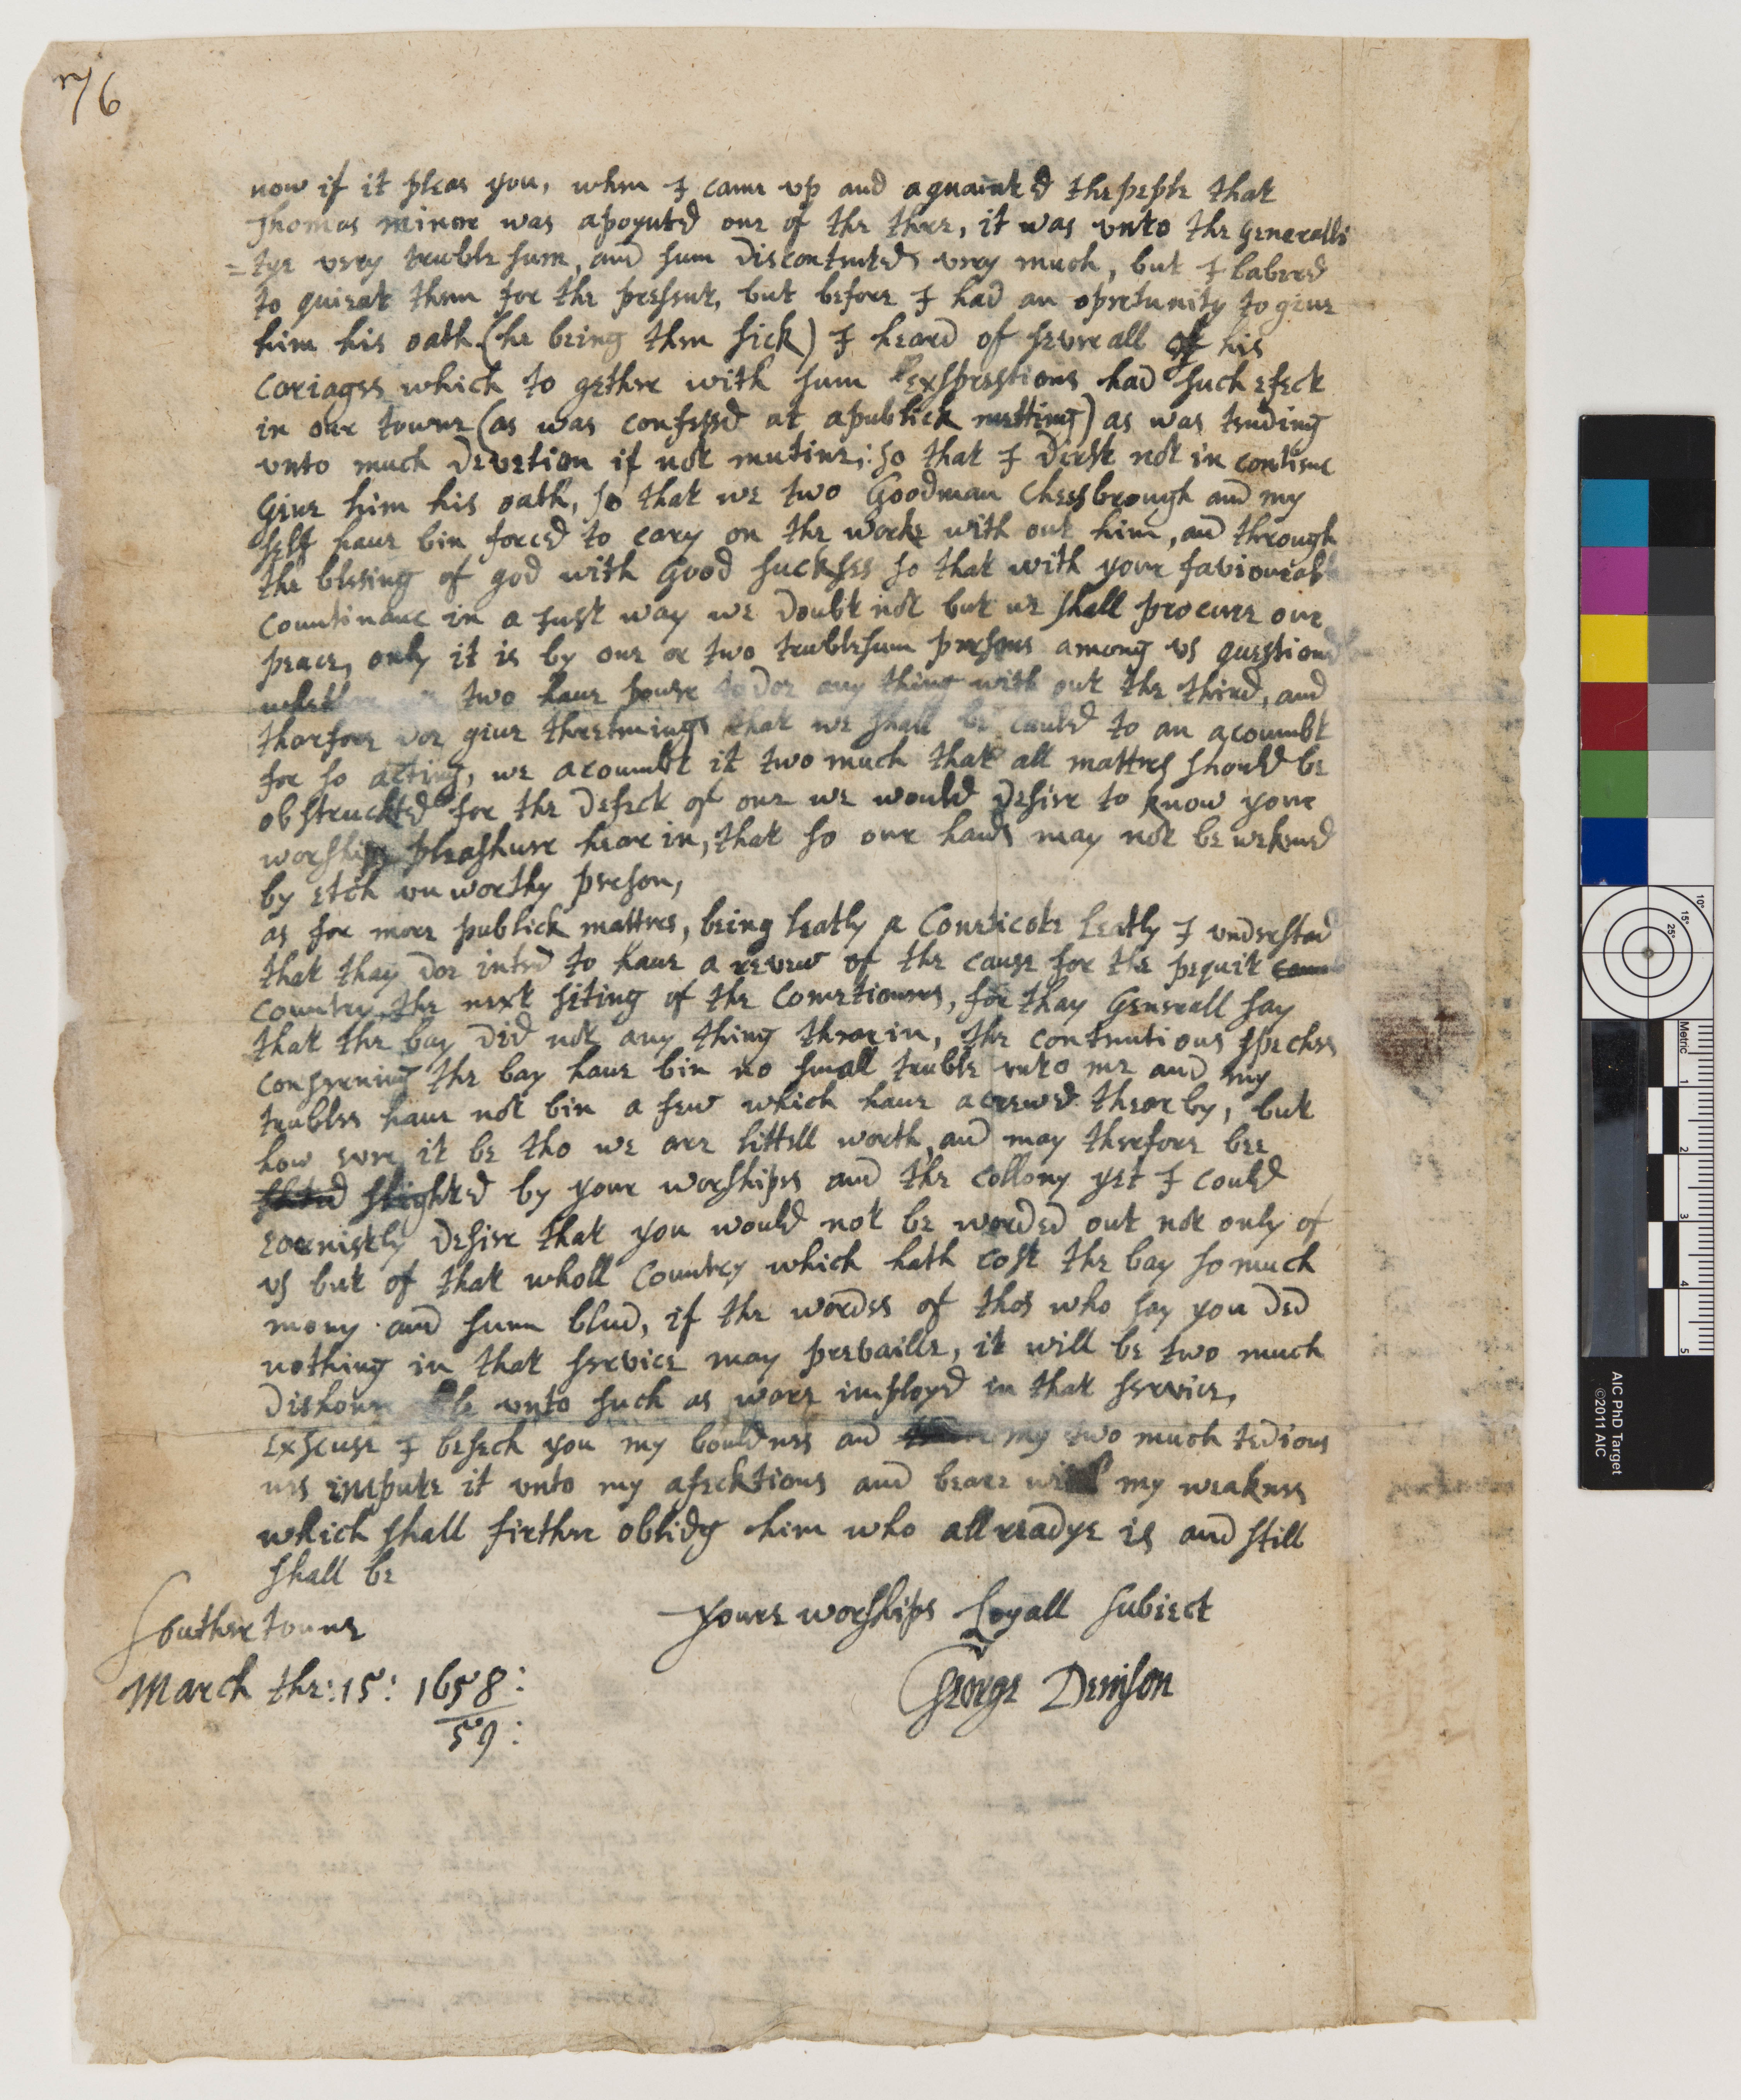 76
now if it pleas you, when I came vp and aquainted the peple that
Thomas Minor was apoynted one of the three, it was vnto the Generalli
=tye very trublesum, and sum discontented very much, but I labered
to quieat them for the present, but before I had an opretunity to giue
him his oath (he being then sick) I heard of seuerall of his
Cariages which to gether with sum exspresstions had such efeck
in our towne (as was confessed at a publick metting) as was tending
vnto much devetion if not mutine; so that I durst not in contienc
Giue him his oath, so that we two Goodman Cheesbrough and my
self haue bin forced to cary on the worke with out him, and through
the blesing of god with Good suckses so that with your faviourabl
Countinanc in a Just way we doubt not but we shall procure our
peace, only it is by one or two trublesum persons among vs questiond
whether we two haue power to doe any thing with out the third, and
tharfore doe giue thretnings that we shall be cauled to an acoumbt
for so acting, we acoumbt it two much that all matters should be
obstruckted for the defeck of one we would desire to know your
worships pleashure hear in, that so our hands may not be wekened
by etch vn worthy preson,
as for more publick matters, being leatly a Conecticote leatly I understad
that thay doe inted to haue a reveiw of the cause for the pequit
Country the next siting of the Comitioners, for thay Generall say
that the bay did not any thing thearin, the contentious speches
conserning the bay haue bin no small truble vnto me and my
trubles haue not bin a few which haue acrewed thearby, but
how euer it be tho we are littell worth and may therfore bee
slighted by your worshipes and the collony yet I could
earnistly desire that you would not be worded out not only of
vs but of that wholl Country which hath cost the bay so much
mony and sum blud, if the wordes of thos who say you ded
nothing in that service may prevaille, it will be two much
dishonorable vnto such as ware imployd in that service,
Exscuse I besech you my bouldnes and my two much tedious
nes impute it vnto my afecktions and beare with my weaknes
which shall firther oblidg him who all readye is and still
shall be
Yours worships Loyall Subiect
Southertowne
George Denison
March the: 15: 1658:
59: